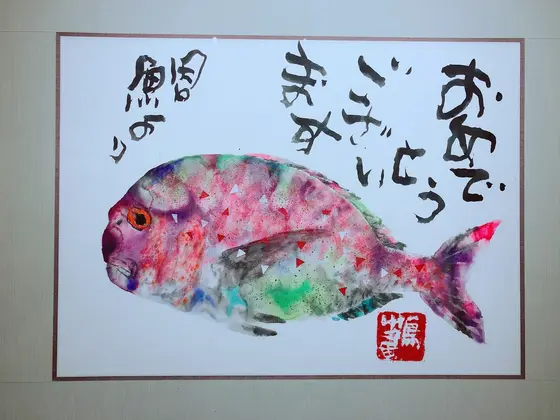 おめで
とう
ござい
ます
鯛より